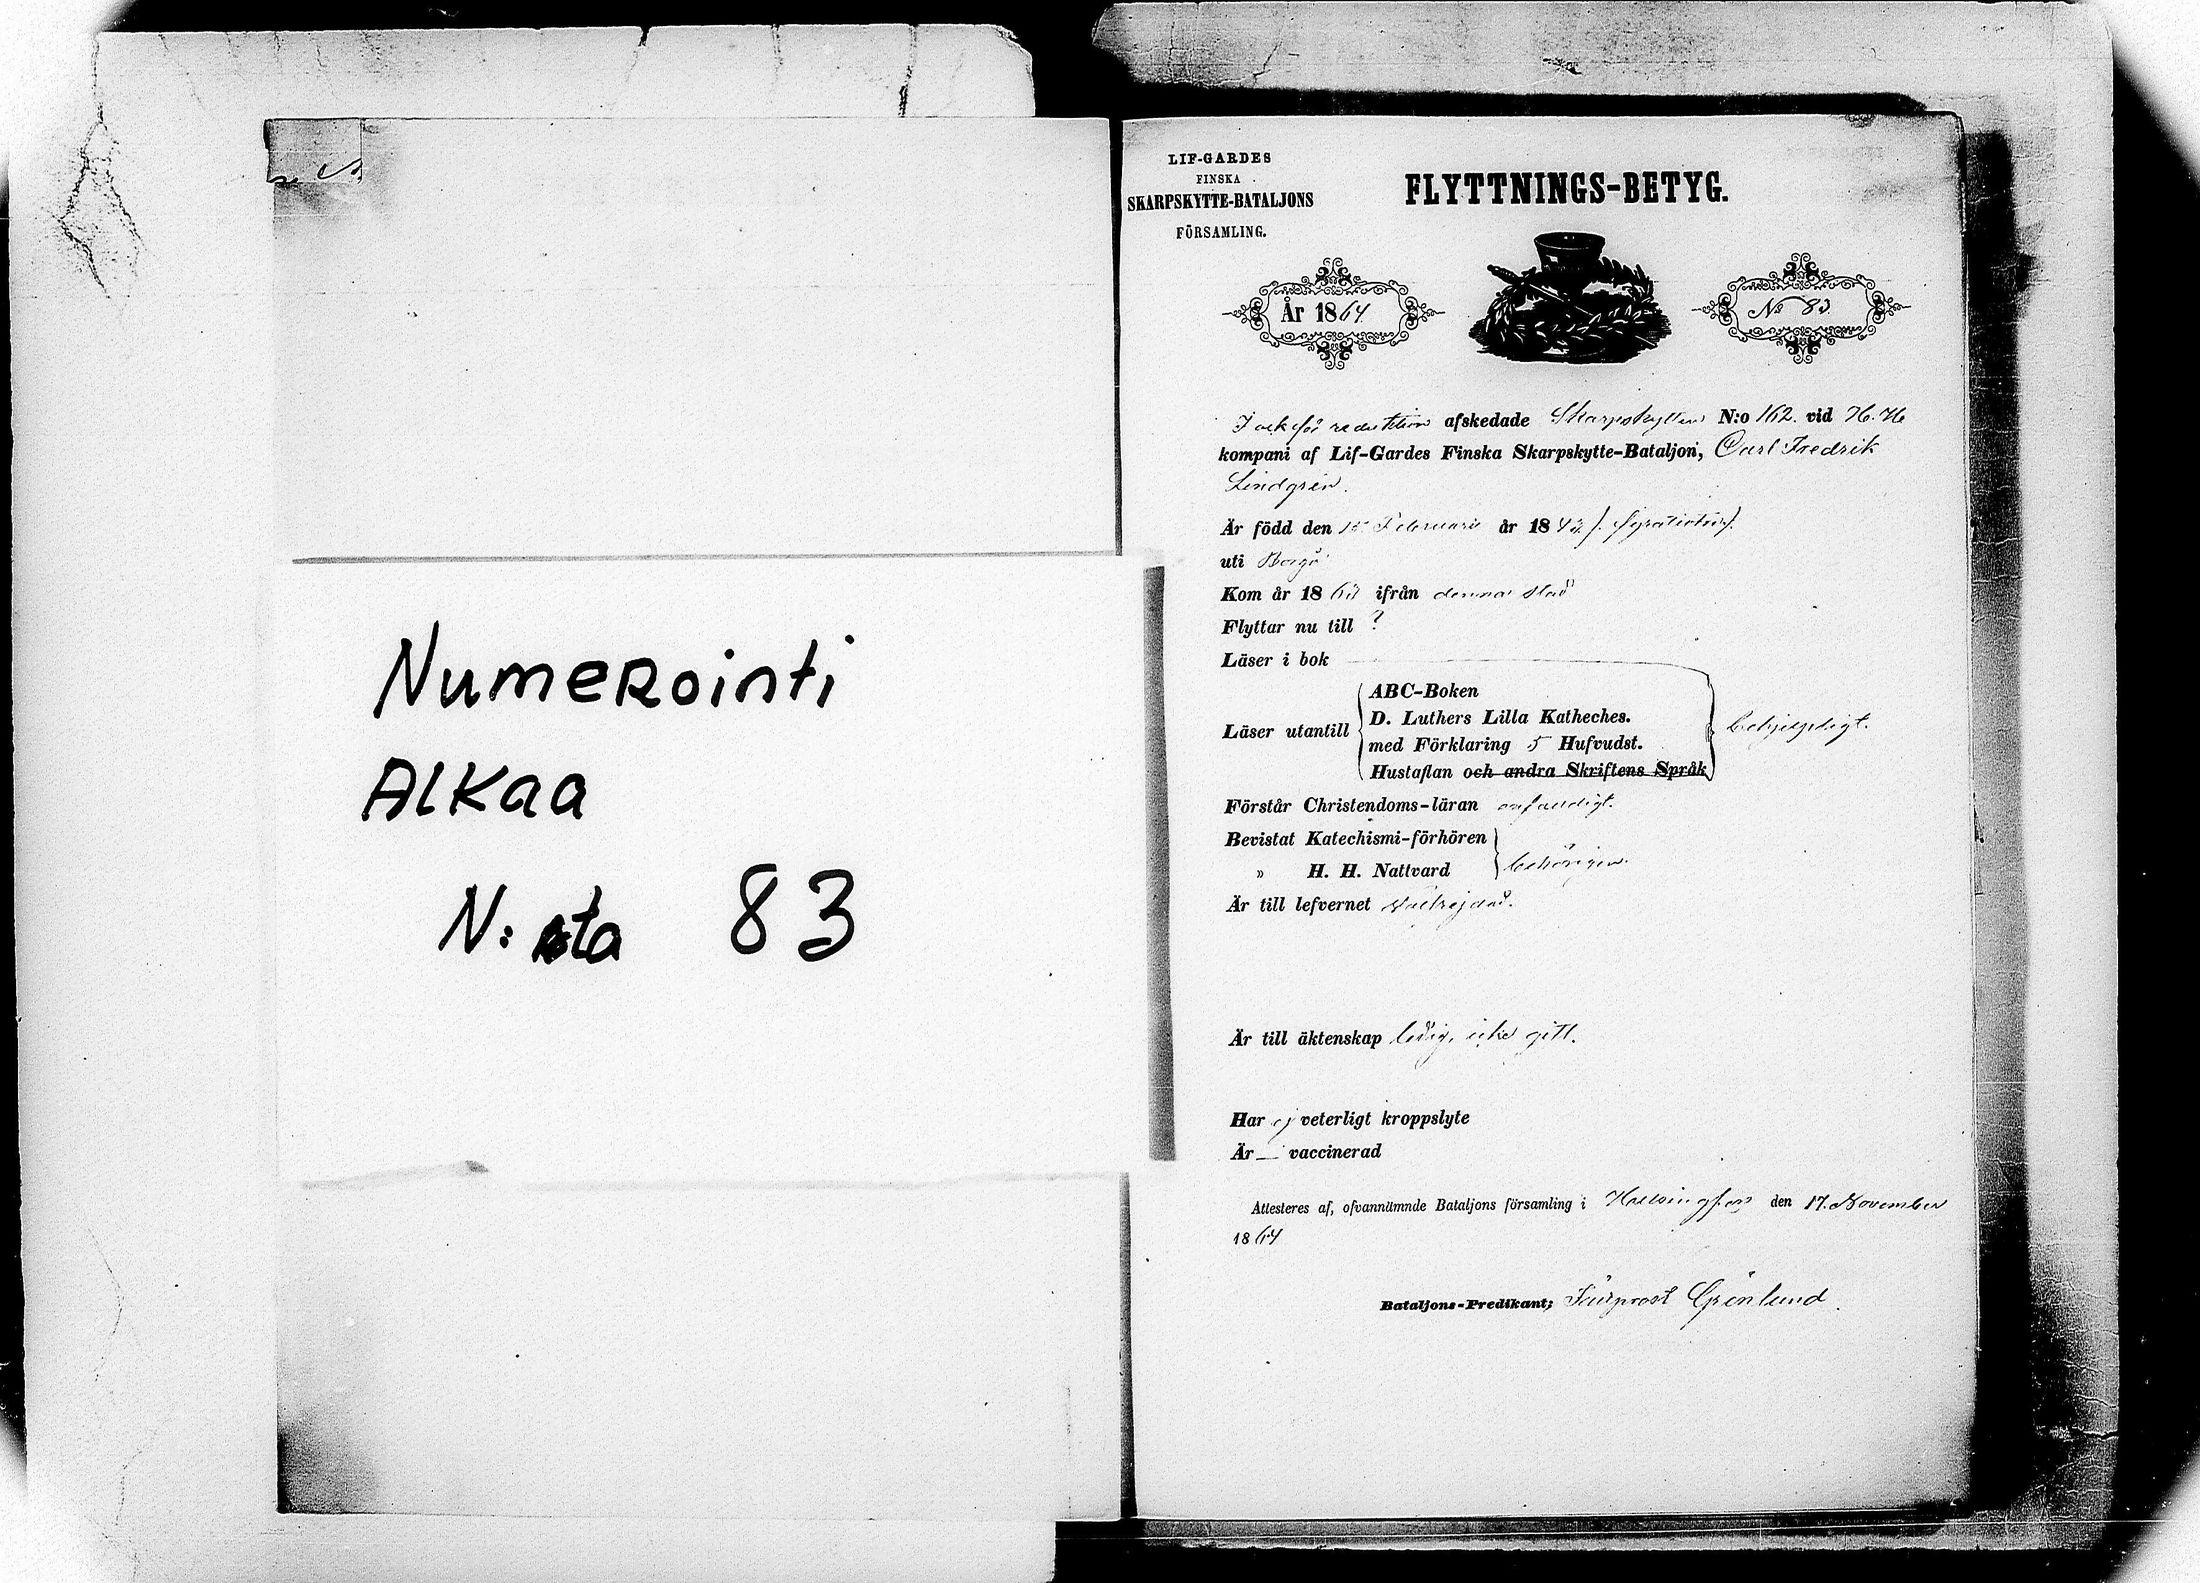 Numerointi
Alkaa
N: sta 83
LIF-GARDES
FINSKA
SKARPSKYTTE-BATALJONS
FÖRSAMLING.
FLYTTNINGS-BETYG.
År 1864
No 83
I och för reduktion afskedade Skarpskytten N:o 162. vid H. H
kompani af Lif-Gardes Finska Skarpskytte-Bataljon, Carl Fredrik
Lindgrén.
Är född den 15 Februarii år 184
uti Borgå
Kom år 18 ifrån denna stad
Flyttar nu till ?
Läser i bok
Läser utantill
ABC-Boken
D. Luthers Lilla Katheches.
med Förklaring 5 Hufvudst.
Hustaflan och andra Skriftens Språk
behjelpligt.
Förstår Christendoms-läran enfaldigt.
Bevistat Katechismi-förhören
" H. H. Nattvard
behörigen.
Är till lefvernet välfrejdad.
Är till äktenskap ledig, icke gift.
Har ej veterligt kroppslyte
Är — vaccinerad
Attesteres af, ofvannämnde Bataljons församling i Helsingfors den 17. November
1864
Bataljons-Predikant; Grönlund.